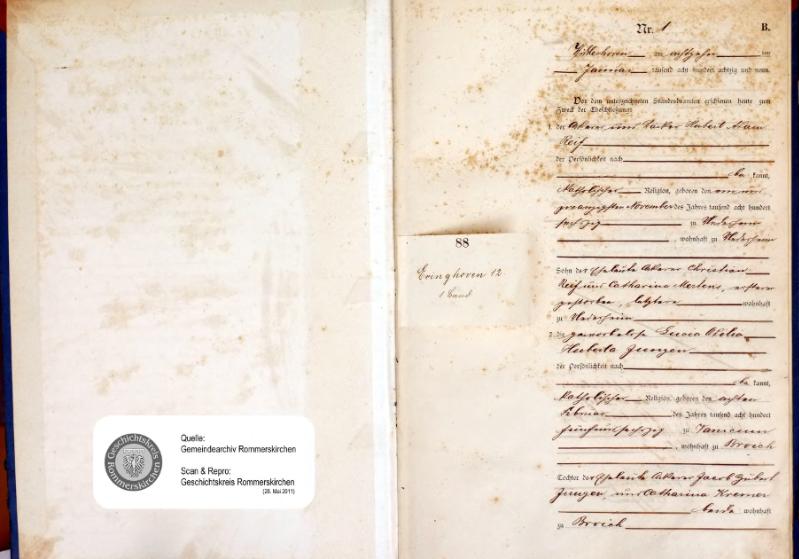 Quelle:
Gemeindearchiv Rommerskirchen
Scan & Repro:
Geschichtskreis Rommerskirchen
(28. Mai 2011)
Geschichtskreis
Rommerskirchen
88
Evinghoven 12
1 Band
Nr. 1
B.
am achtzehn ten
Januar tausend acht hundert achtzig und neun
Vor dem unterzeichneten Standesbeamten erschienen heute zum
Zweck der Eheschließung:
1. der Ackerer und Hubert
Reif
der Persönlichkeit nach
be kannt,
katholischer Religion, geboren den
November des Jahres tausend acht hundert
sechzig zu
, wohnhaft zu
Sohn der Eheleute Ackerer Christian
Reif und Catharina Mertens, ersterer
gestorben, letztere wohnhaft
zu
2. die gewerbelose Lucia
Huberta Jungen
der Persönlichkeit nach
be kannt,
katholischer Religion, geboren den achten
Februar des Jahres tausend acht hundert
fünfundsechzig zu
, wohnhaft zu Broich
Tochter der Eheleute Ackerer Jacob Hubert
Jungen und Catharina Kremer
beide wohnhaft
zu Broich